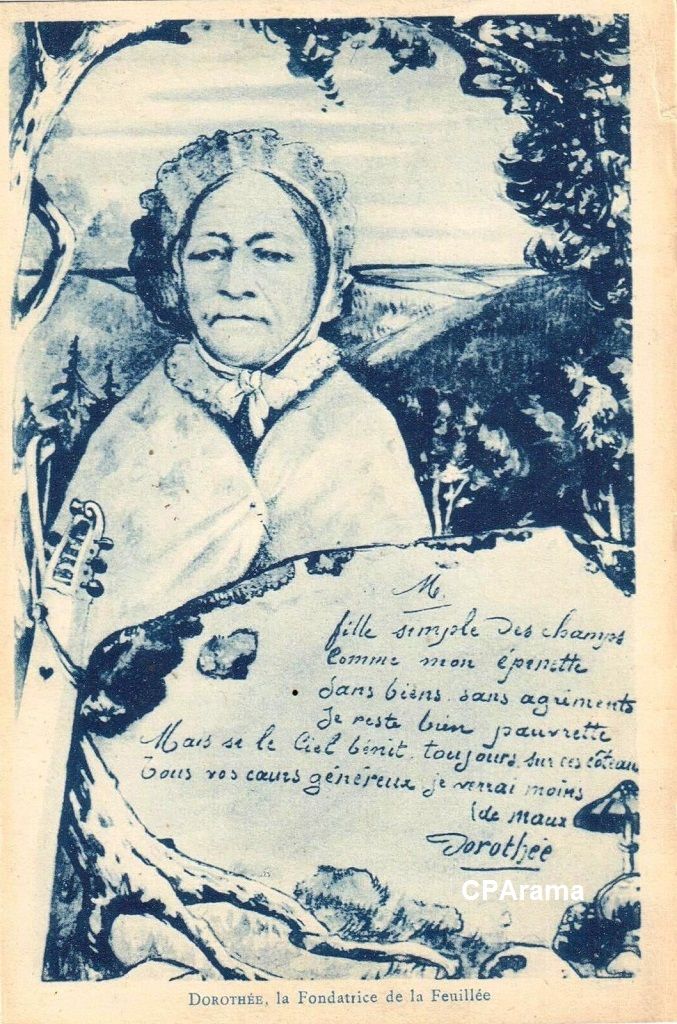 M.
fille simple des champs
Comme mon épinette
Sans biens, sans agréments
Je reste bien pauvrette
Mais se le Ciel bénit, toujours, sur ces côteau
Tous vos cœurs généreux je verrai moins
(de maux
Dorothée
CPArama
DOROTHÉE, la Fondatrice de la Feuillée